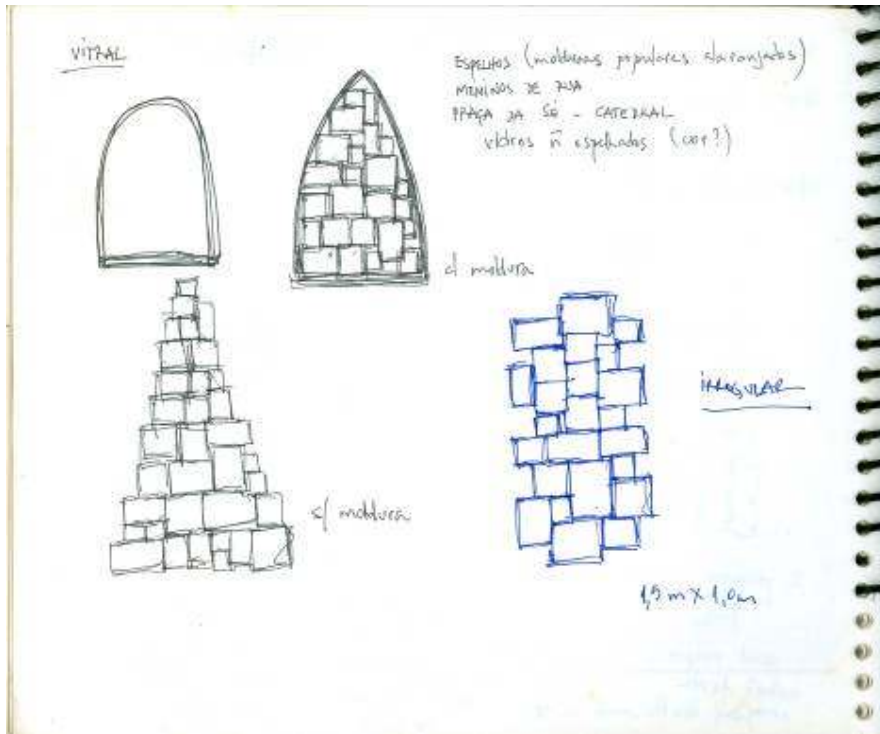 VITRAL
ESPELHOS (molduras populares alaranjados)
MENINOS DE RUA
PRAÇA DA SÉ - CATEDRAL
vidros ñ espelhados (cor?)
c/ moldura
IRREGULAR
s/ moldura
1,5 m X 1,0 m